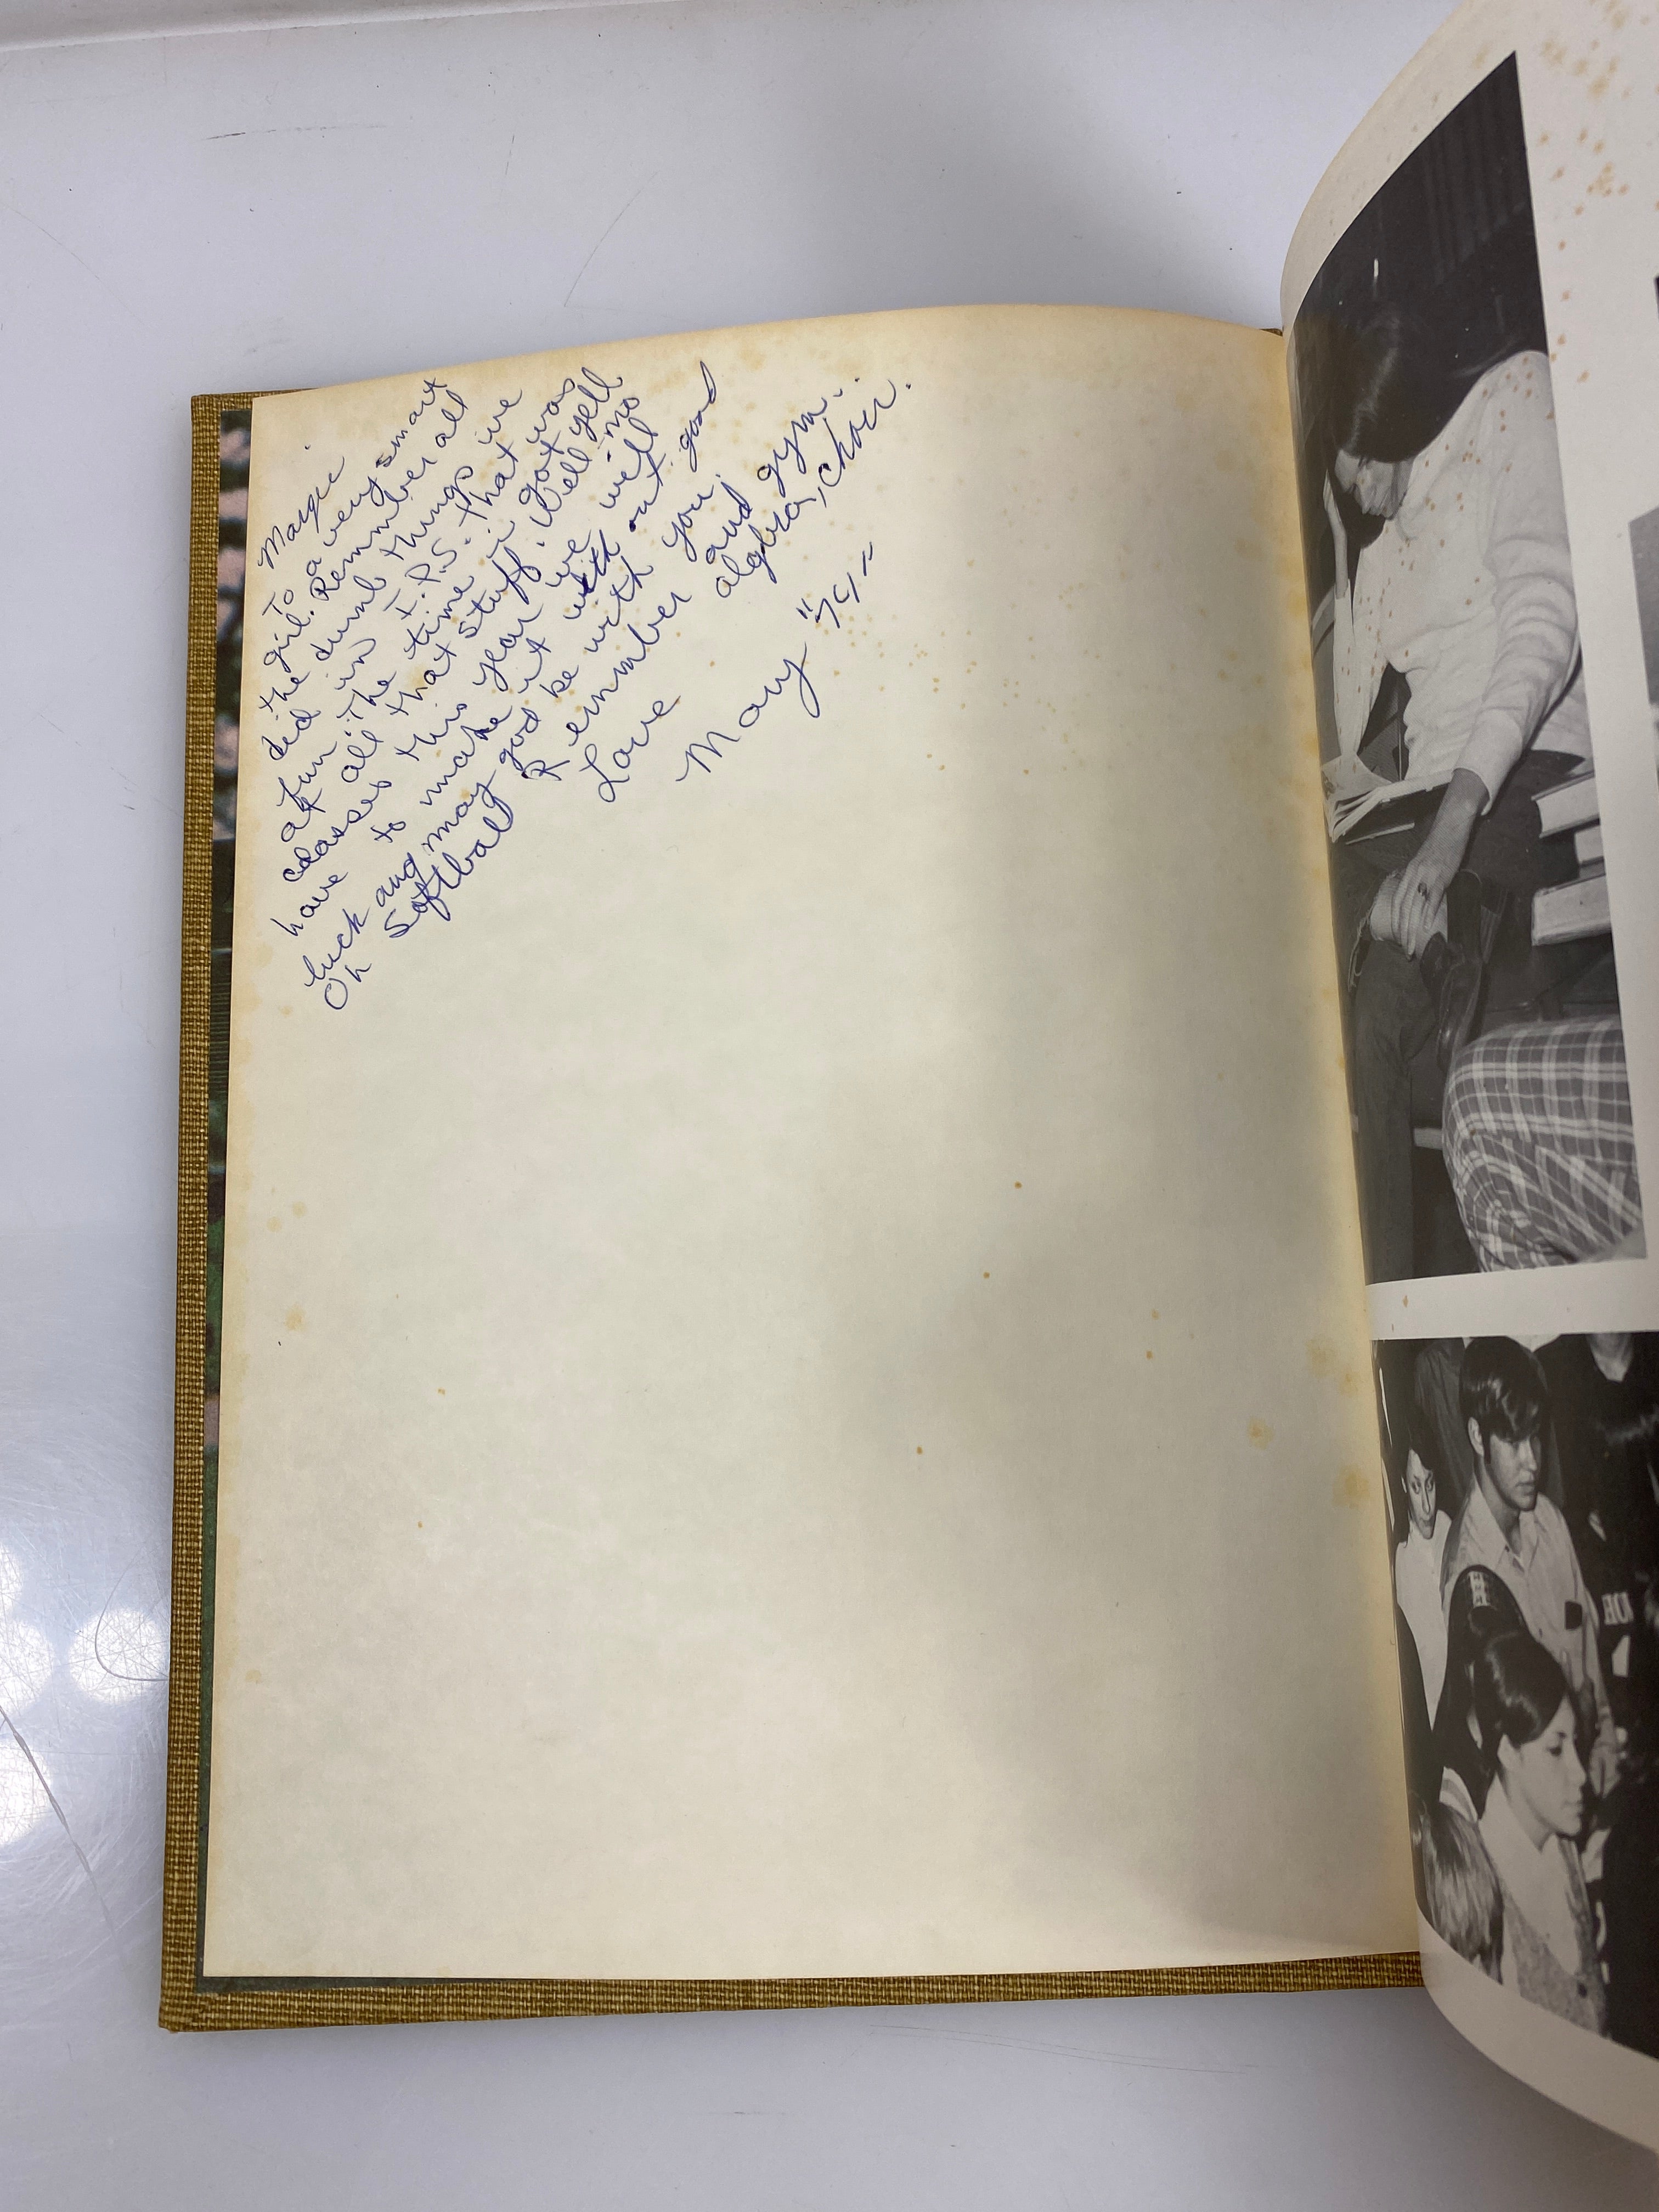 Margie
To a very smart
girl. Remmber all
the dumb things we
did in I.P.S. that was
fun. The time i got yell
at all that stuff. Well no
classes this year we will
have to make it with out good
luck and may god be with you.
Oh Softball Remmber and gym.
algbra, choir.
Love
Mary "74"
HO